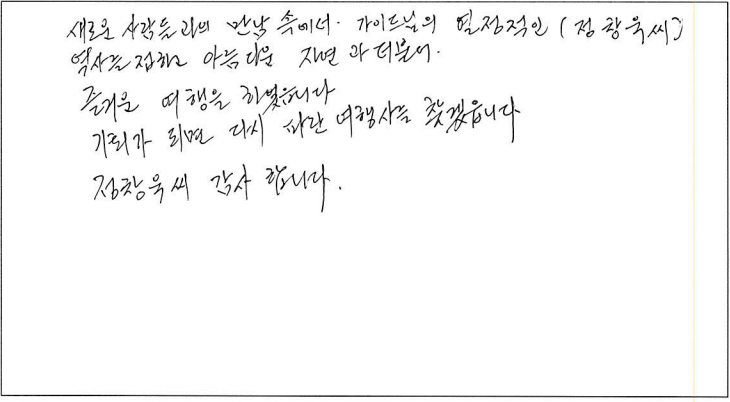 새로운 사람들과의 만남 속에서. 가이드님의 열정적인 (정창욱씨)
역사를 접하고 아름다운 자연과 더불어.
즐거운 여행을 하였습니다
기회가 되면 다시 파란 여행사를 찾겠읍니다
정창욱씨 감사 합니다.